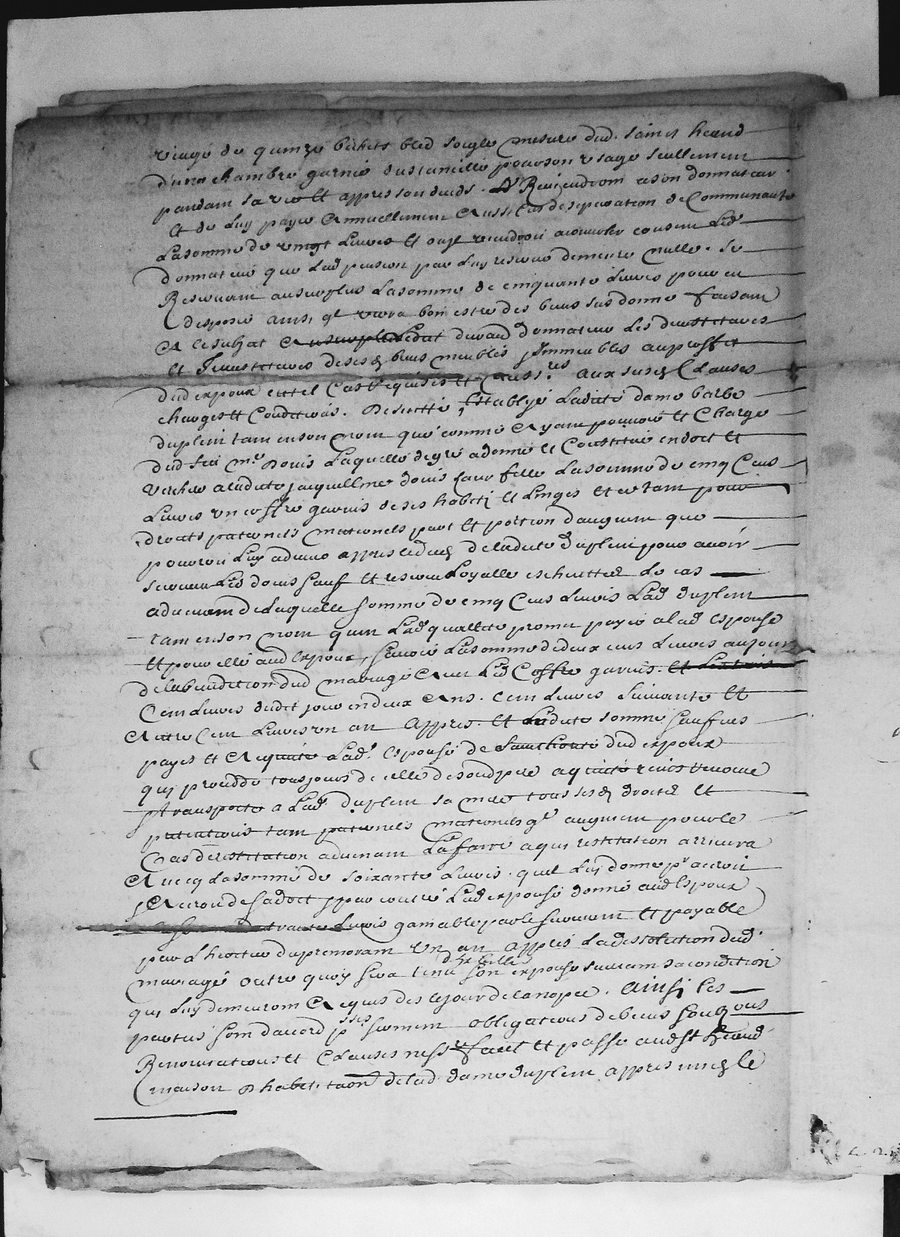 viage de quinze bichets bled soigle mesure dud. sainct heand
d'une chambre garnie dustancille pour son usage seullement
pandant sa vie et appres son deceds. Et Reviendront a son donnataire
Et de luy payer Annuellement Aussi en cas de separation de Communauté
La somme de vingt Livres et
donnateur que lad pension par luy reservé demeure nulle. se
Reservant au surplus La somme de cinquante Livres pour en
disposer ainsi q vivra bon estre des biens sus donné faisant
A cest effect led donnateur Les devestitures
et Jnvestitures de sesd biens meubles Jmmeubles au proffit
dud espoux en tel cas Requises et aux susd Clauses
charges et Conditions. De suitte Establye Ladite dame barbe
duplein tam en son nom que comme Ayant pouvoir et Charge
dud feu mre Douis Laquelle de gré a donné et Constitué en dot et
verchere a ladite Jacquelline Douis leur fille La somme de cinq Cens
Livres un coffre garnis de ses habits et Linges et ce tam pour
droits paternels maternels part et portion d'augment que
pourroit luy advenir appres le deceds de ladite duplein pour avoir
survecu led douis sauf et reservé Loyalle escheutte Le cas
advenant de Laquelle somme de cinq Cens Livres Lad duplein
tam en son nom qu'en lad quallité promet payer a lad espouse
Et pour elle aud espoux, scavoir La somme de deux cens Livres au jour
de la benediction dud mariage Avec led Coffre garnis.
Cent Livres dudit jour en deux Ans. Cent Livres suivante et
Autre Cent Livres un an appres. et ladite somme
payes et Acquitté Lad. Espouse de Lauthorité dud espoux
qui procedde tousjours de celle de sond pere a quitté
transporté a Lad duplein sa mere tous sesd droits et
pretentions tam paternels maternels q augment pour le
Cas de restitution advenant La faire a qui restitution arrivera
Avecq La somme de soixante Livres. quil luy donne pr acroit
Acroit de sa dot Et par contre Lad espouse donne aud Espoux
trante Livres gaignable par le survivant et payable
par Lheritier du premourant un an appres la dissolution dud.
mariage outre quoy sera tenu d'habiller son espouse suivant sa condition
qui luy demeuront Acquis des le jour de la nopce. Ainsi les
parties sont d'accord pnt serment obligations de biens
Renonciations et Clauses fait et passé aud st heand
maison d'habittaon de lad. dame duplein appres midy le